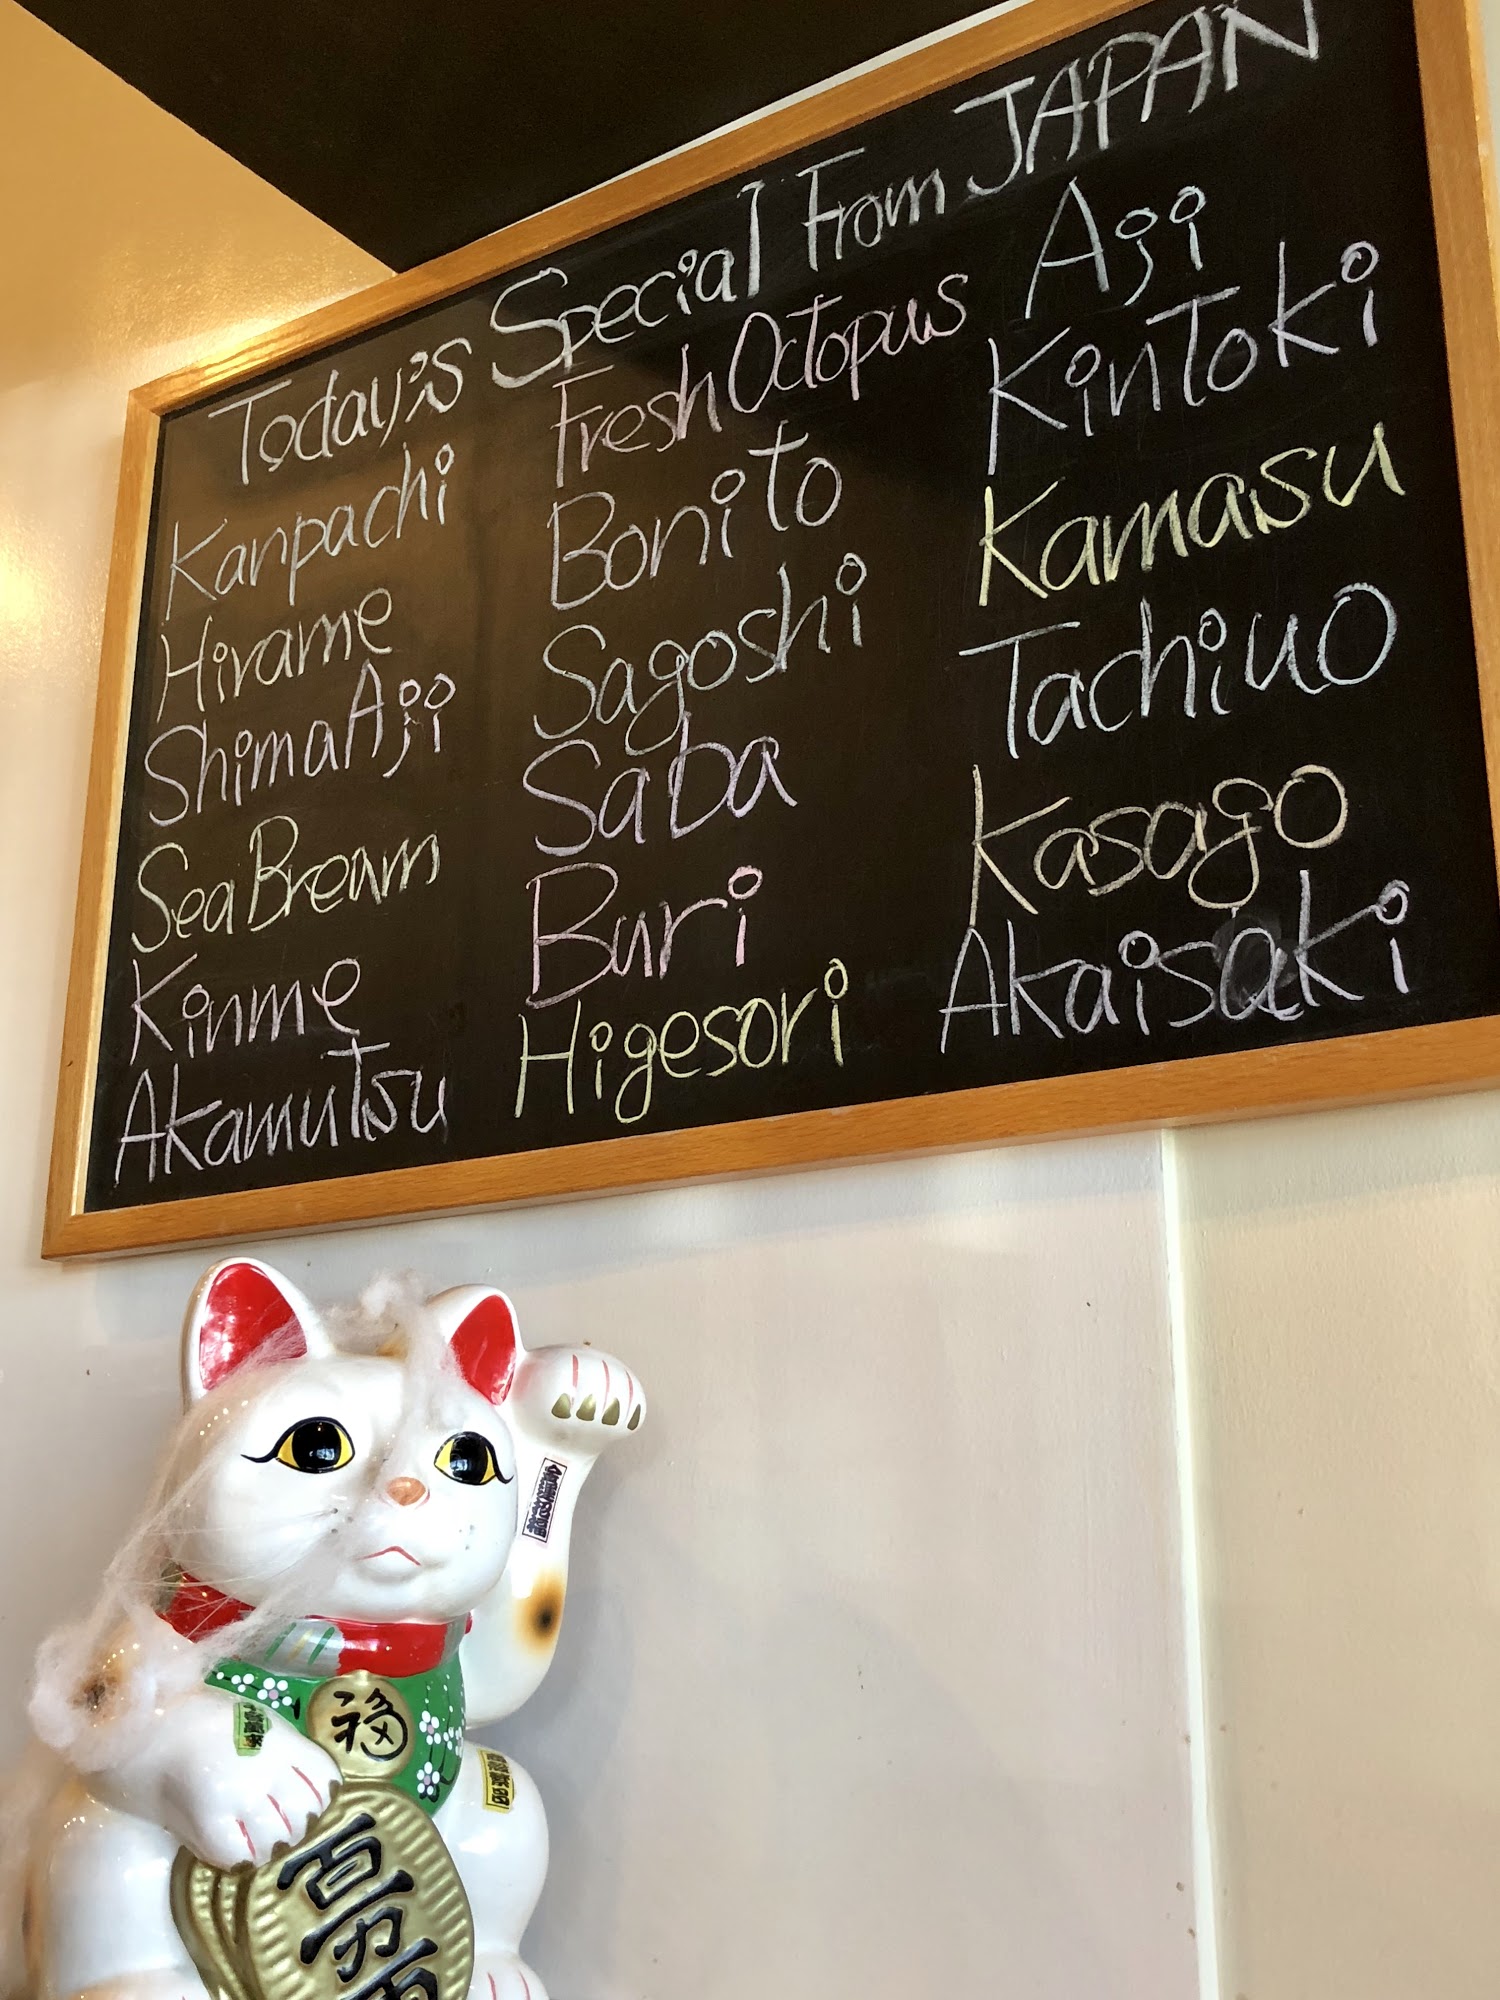 Today's Special From JAPAN
Kanpachi
Hirame
Shima Aji
Sea Bream
Kinme
Akamutsu
Fresh Octopus
Bonito
Sagoshi
Saba
Buri
Higesori
Aji
Kintoki
Kamasu
Tachiuo
Kasago
Akaisaki
福
百万両